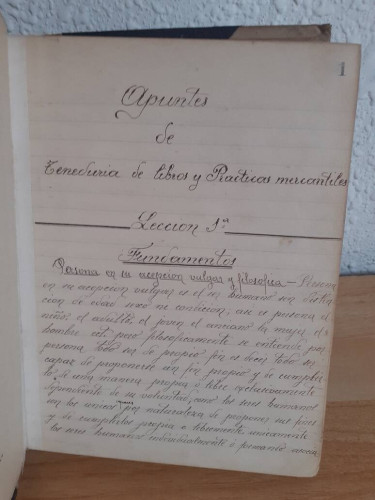 1
Apuntes
de
Teneduria de libros y Practicas mercantiles
Leccion 1ª
Fundamentos
Persona en su acepcion vulgar y filosofica — Persona
en su acepcion vulgar es el ser humano sin distin
cion de edad sexo ni condicion; asi es persona el
niño, el adulto, el joven el anciano la mujer, el
hombre etc. pero filosoficamente se entiende por
persona todo ser de propio fin es decir todo ser
capaz de proponerse un fin propio y de cumplir
lo de una manera propia y libre exclusivamente
dependiente de su voluntad; siendo los seres humanos
los unicos por naturaleza de proponer sus fines
y de cumplirlos propia y libremente unicamente
los seres humanos individualmente o